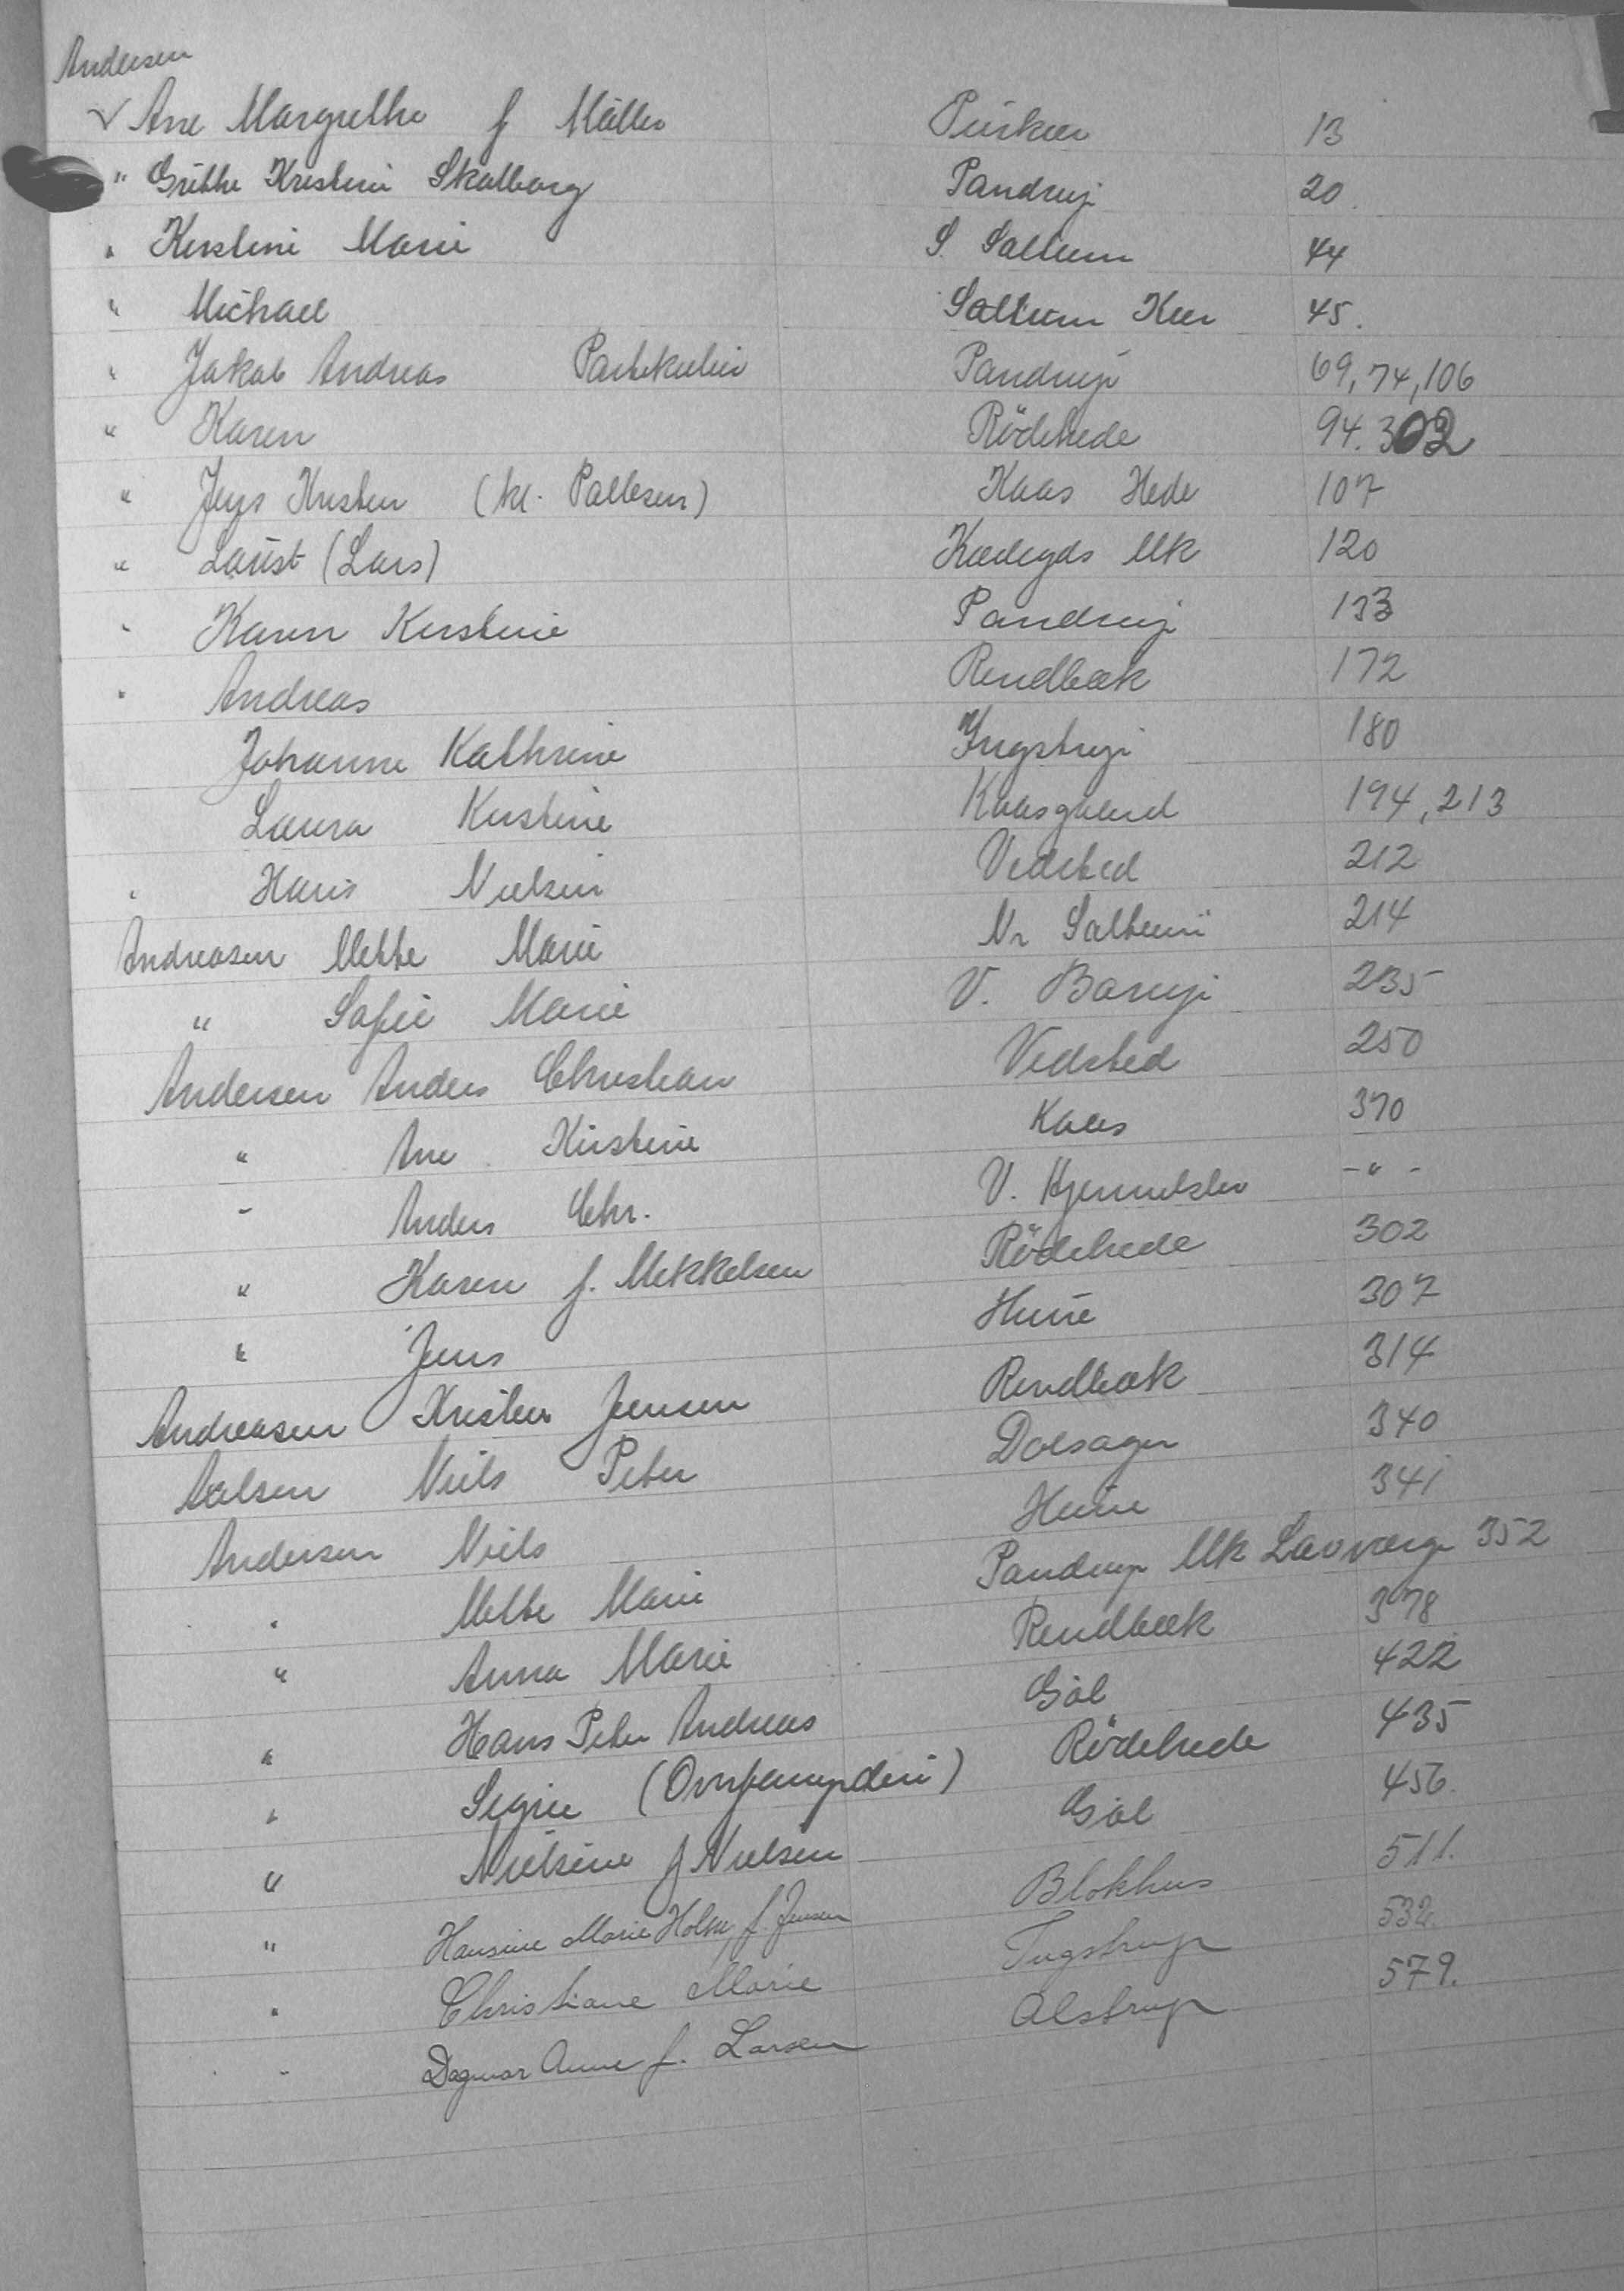 Andersen
Ane Margrethe f Møller Pirkær 13
" Grethe Kristine Skalborg Pandrup 20
" Kirstine Marie S. Saltum 44
" Michael Saltum Kær 45.
" Jakob Andreas Partikulier Pandrup 69, 74, 106
" Karen Rödehede 94. 302
" Jens Kristen (kl. Pallesen) Kaas Hede 107
" Laust (Lars) Mk 120
" Karen Kirstine Pandrup 133
" Andreas Rendbæk 172
Johanne Kathrine Ingstrup 180
Laura Kirstine Kaasgaard 194, 213
" Hans Nielsen Vedsted 212
Andreasen Mette Marie Nr Saltum 214
" Sofie Marie V. Barup 235
Andersen Anders Christian Vedsted 250
" Ane Kirstine Kaas 370
" Anders Chr. V. Hjermitslev - " -
" Karen f. Mikkelsen Rödehede 302
" Jens Hune 307
Andreasen Kristen Jensen Rendbæk 314
Axelsen Niels Peter Dolsager 340
Andersen Niels Hune 341
" Mette Marie Pandrup Mk Lavværge 352
" Anna Marie Rendbæk 378
" Hans Peter Andreas Gøl 422
" Signe Rödehede 435
" Nielsine f Nielsen Gøl 456.
" Hansine Marie Holm, f. Jensen Blokhus 511.
" Christiane Marie Ingstrup 532.
" Dagmar Anne f. Larsen Alstrup 579.